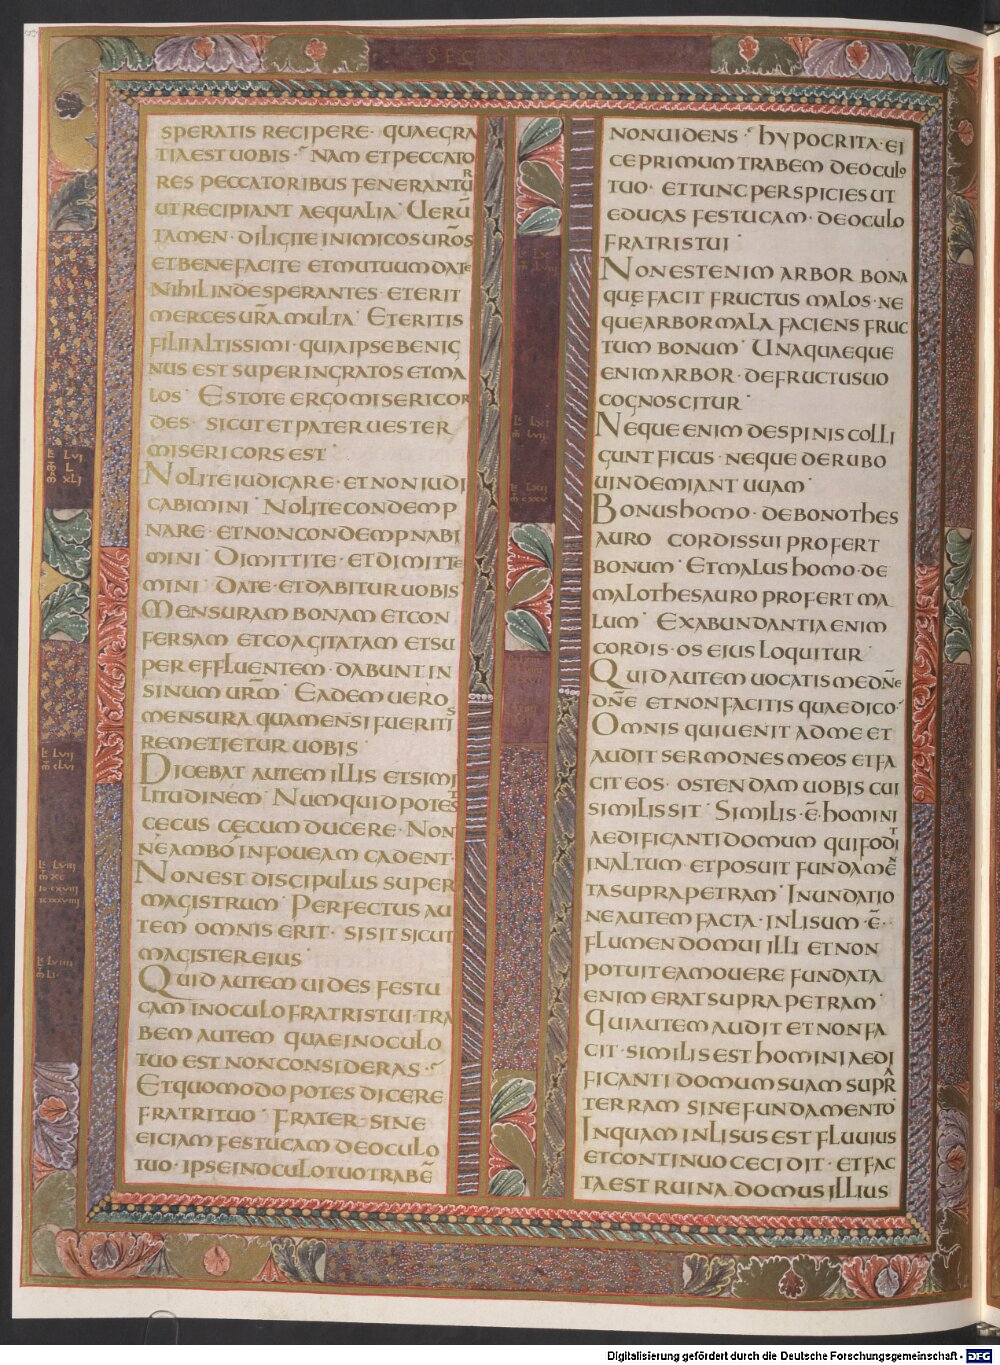 SPERATIS RECIPERE· QUAE GRA
TIA EST UOBIS· NAM ET PECCATO
RES PECCATORIBUS FENERANTUR
UT RECIPIANT AEQUALIA· UERŪ
TAMEN· DILIGITE INIMICOS UR̄OS
ET BENEFACITE ET MUTUUM DATE
NIHIL INDE SPERANTES· ET ERIT
MERCES UR̄A MULTA· ET ERITIS
FILII ALTISSIMI· QUIA IPSE BENIG
NUS EST SUPER INGRATOS ET MA
LOS· ESTOTE ERGO MISERICOR
DES· SICUT ET PATER UESTER
MISERICORS EST·
NOLITE IUDICARE· ET NON IUDI
CABIMINI· NOLITE CONDEMP
NARE· ET NON CONDEMPNABI
MINI· DIMITTITE· ET DIMITTE
MINI· DATE· ET DABITUR UOBIS
MENSURAM BONAM ET CON
FERSAM ET COAGITATAM ET SU
PER EFFLUENTEM· DABUNT IN
SINUM UR̄M· EADEM UERO
MENSURA QUA MENSI FUERITIS
REMETIETUR UOBIS·
DICEBAT AUTEM ILLIS ET SIMI
LITUDINEM· NUMQUID POTEST
CECUS CECUM DUCERE· NON
NE AMBO IN FOUEAM CADENT·
NON EST DISCIPULUS SUPER
MAGISTRUM· PERFECTUS AU
TEM OMNIS ERIT· SI SIT SICUT
MAGISTER EIUS·
QUID AUTEM UIDES FESTU
CAM IN OCULO FRATRIS TUI· TRA
BEM AUTEM QUAE IN OCULO
TUO EST NON CONSIDERAS·
ET QUOMODO POTES DICERE
FRATRI TUO· FRATER· SINE
EICIAM FESTUCAM DE OCULO
TUO· IPSE IN OCULO TUO TRABĒ
NON UIDENS· HYPOCRITA· EI
CE PRIMUM TRABEM DE OCULO
TUO· ET TUNC PERSPICIES UT
EDUCAS FESTUCAM· DE OCULO
FRATRIS TUI·
NON EST ENIM ARBOR BONA
QUĘ FACIT FRUCTUS MALOS· NE
QUE ARBOR MALA FACIENS FRUC
TUM BONUM· UNAQUAEQUE
ENIM ARBOR· DE FRUCTU SUO
COGNOSCITUR·
NEQUE ENIM DE SPINIS COLLI
GUNT FICUS· NEQUE DE RUBO
UINDEMIANT UUAM·
BONUS HOMO· DE BONO THES
AURO CORDIS SUI PROFERT
BONUM· ET MALUS HOMO· DE
MALO THESAURO PROFERT MA
LUM· EX ABUNDANTIA ENIM
CORDIS· OS EIUS LOQUITUR·
QUID AUTEM UOCATIS ME DN̄E
DN̄E ET NON FACITIS QUAE DICO·
OMNIS QUI UENIT AD ME ET
AUDIT SERMONES MEOS ET FA
CIT EOS· OSTENDAM UOBIS CUI
SIMILIS SIT· SIMILIS· Ē· HOMINI
AEDIFICANTI DOMUM QUI FODIT
IN ALTUM· ET POSUIT FUNDAMĒ
TA SUPRA PETRAM· INUNDATIO
NE AUTEM FACTA· INLISUM· Ē·
FLUMEN DOMUI ILLI ET NON
POTUIT EAM OUERE FUNDATA
ENIM ERAT SUPRA PETRAM·
QUI AUTEM AUDIT ET NON FA
CIT· SIMILIS EST HOMINI AEDI
FICANTI DOMUM SUAM SUPRA
TERRAM SINE FUNDAMENTO·
IN QUAM INLISUS EST FLUUIUS
ET CONTINUO CECIDIT· ET FAC
TA EST RUINA DOMUS ILLIUS
Digitalisierung gefördert durch die Deutsche Forschungsgemeinschaft - DFG